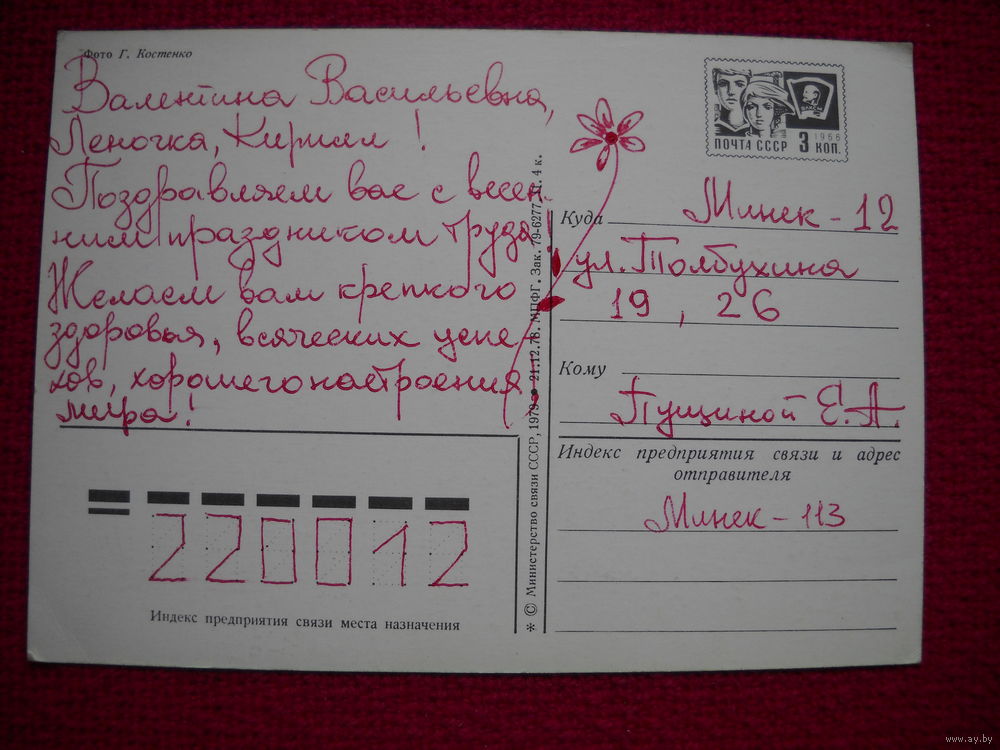 Фото Г. Костенко
Валентина Васильевна,
Леночка, Кирилл!
Поздравляем вас с весен-
ним праздником труда!
Желаем вам крепкого
здоровья, всяческих успе-
хов, хорошего настроения
мира!
220012
Индекс предприятия связи места назначения
* © Министерство связи СССР, 1979 21.12.78. МПФГ. Зак. 79-6277. Ц. 4 к.
ВЛКСМ
1966
ПОЧТА СССР 3 КОП.
Куда Минск - 12
ул. Толбухина
19, 26
Кому
Пущиной Е.А.
Индекс предприятия связи и адрес
отправителя
Минск - 113
www.ay.by